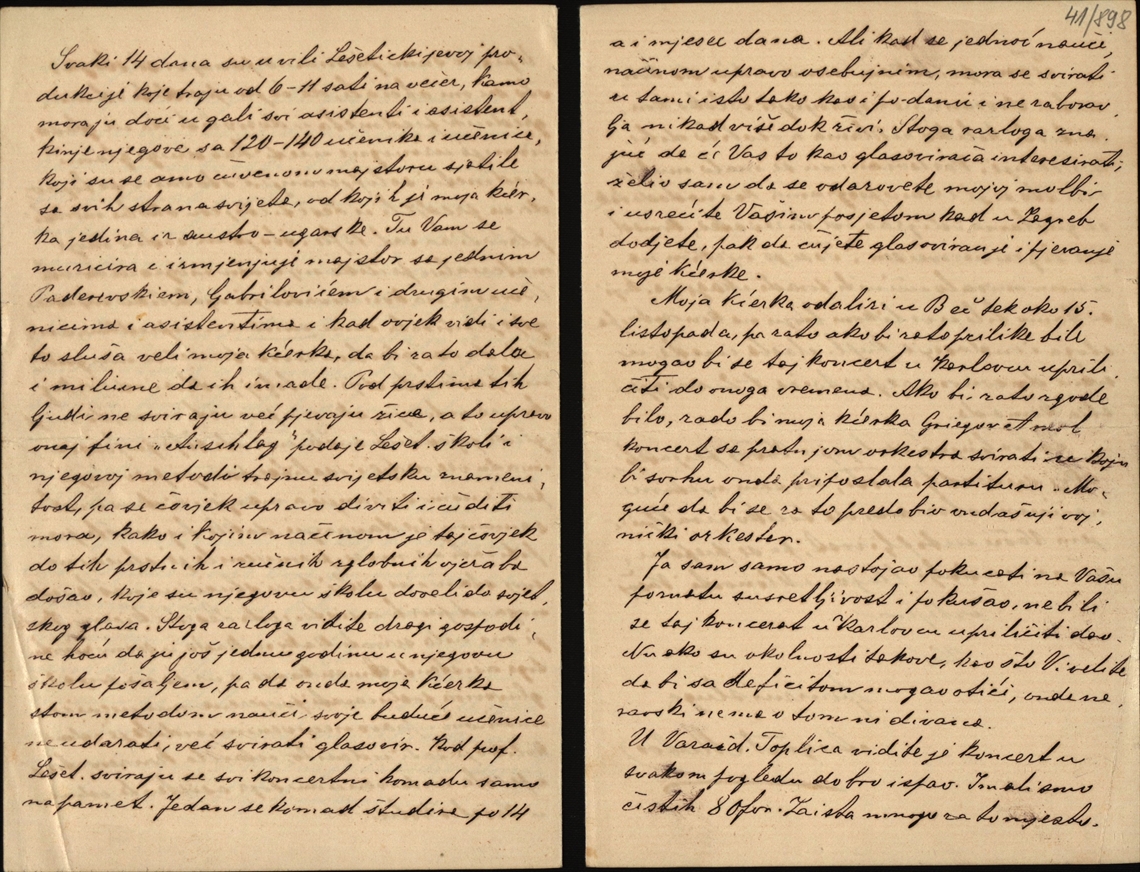 Svaki 14 dana su u vili Lešetickijevoj pro-
dukcije koje traju od 6-11 sati na večer, kamo
moraju doći u gali svi asistenti i asistent,
kinje njegove sa 120-140 učenika i učenice,
koji su se amo čuvenomu majstoru sjatile
sa svih strana svijeta, od kojih je moja kćer,
ka jedina iz austro-ugarske. Tu Vam se
muzicira i izmjenjuje majstor sa jednim
Paderevskiem, Gabrilovićem i drugim uče,
nicima i asistentima i kad čovjek vidi i sve
to sluša veli moja kćerka, da bi zato dala
i miliune da ih imade. Pod prstima tih
ljudi ne sviraju već pjevaju žice, a to upravo
onaj fini „Anschlag" podaje Lešet. školi i
njegovoj metodi trajnu svjetsku znameni,
tost, pa se čovjek upravo diviti i čuditi
mora, kako i kojim načinom je taj čovjek
do tih prstnih i ručnih zglobnih vježba
došao, koje su njegovu školu doveli do svjet,
skog glasa. Stoga razloga vidite dragi gospodi,
ne hoću da ju još jednu godinu u njegovu
školu pošaljem, pa da onda moja kćerka
stom metodom nauči svoje buduće učenice
ne udarati, već svirati glasovir. Kod prof.
Lešet. sviraju se svi koncertni komadi samo
napamet. Jedan se komad študira po 14
41/898
a i mjesec dana. Ali kad se jednoć nauči,
načinom upravo osebujnim, mora se svirati
u tami isto tako kao i po danu i ne zaborav
lja nikad više dok živi. Stoga razloga zna
juć da će Vas to kao glasovirača interesirati,
želio sam da se odazovete mojoj molbi
i usrećite Vašim posjetom kad u Zagreb
dodjete, pak da čujete glasoviranje i pjevanje
moje kćerke.
Moja kćerka odalazi u Beč tek oko 15.
listopada, pa zato ako bi zato prilike bile
mogao bi se taj koncert u Karlovcu uprili
čiti do onoga vremena. Ako bi zato zgode
bilo, rado bi moja kćerka Griegov A mol
koncert sa pratnjom orkestra svirati u koju
bi svrhu onda pripostala partituru. Mo-
guće da bi se za to predobiv ondašnji voj,
nički orkester.
Ja sam samo nastojao pokucati na Vašu
poznatu susretljivost i pokušao, nebi li
se taj koncerat u Karlovcu upriličiti dao.
Nu ako su okolnosti takove, kao što Vi velite
da bi sa deficitom mogao otići, onda ne,
ravski nema o tom ni divana.
U Varažd. Toplica vidite je koncert u
svakom pogledu dobro ispao. Imali smo
čistih 80 for. Zaista mnogo za to mjesto.